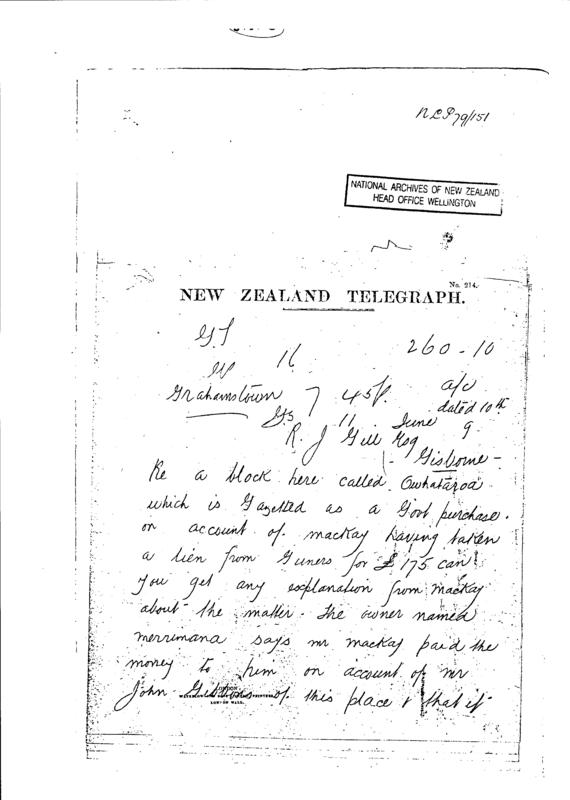 NLP 79/151
NATIONAL ARCHIVES OF NEW ZEALAND
HEAD OFFICE WELLINGTON
No. 214.
NEW ZEALAND TELEGRAPH.
16
260-10
Grahamstown 7 45p. a/c
dated 10th
11 June 9
R. J Gill Esq
Gisborne -
Re a block here called Owhataroa
which is Gazetted as a Govt purchase.
on account of mackay having taken
a lien from owners for £175 can
you get any explanation from Mackay
about the matter. The owner named
merrimana says mr mackay paid the
money to him on account of mr
John Gibbons of this place & that it
LONDON
LONDON WALL.